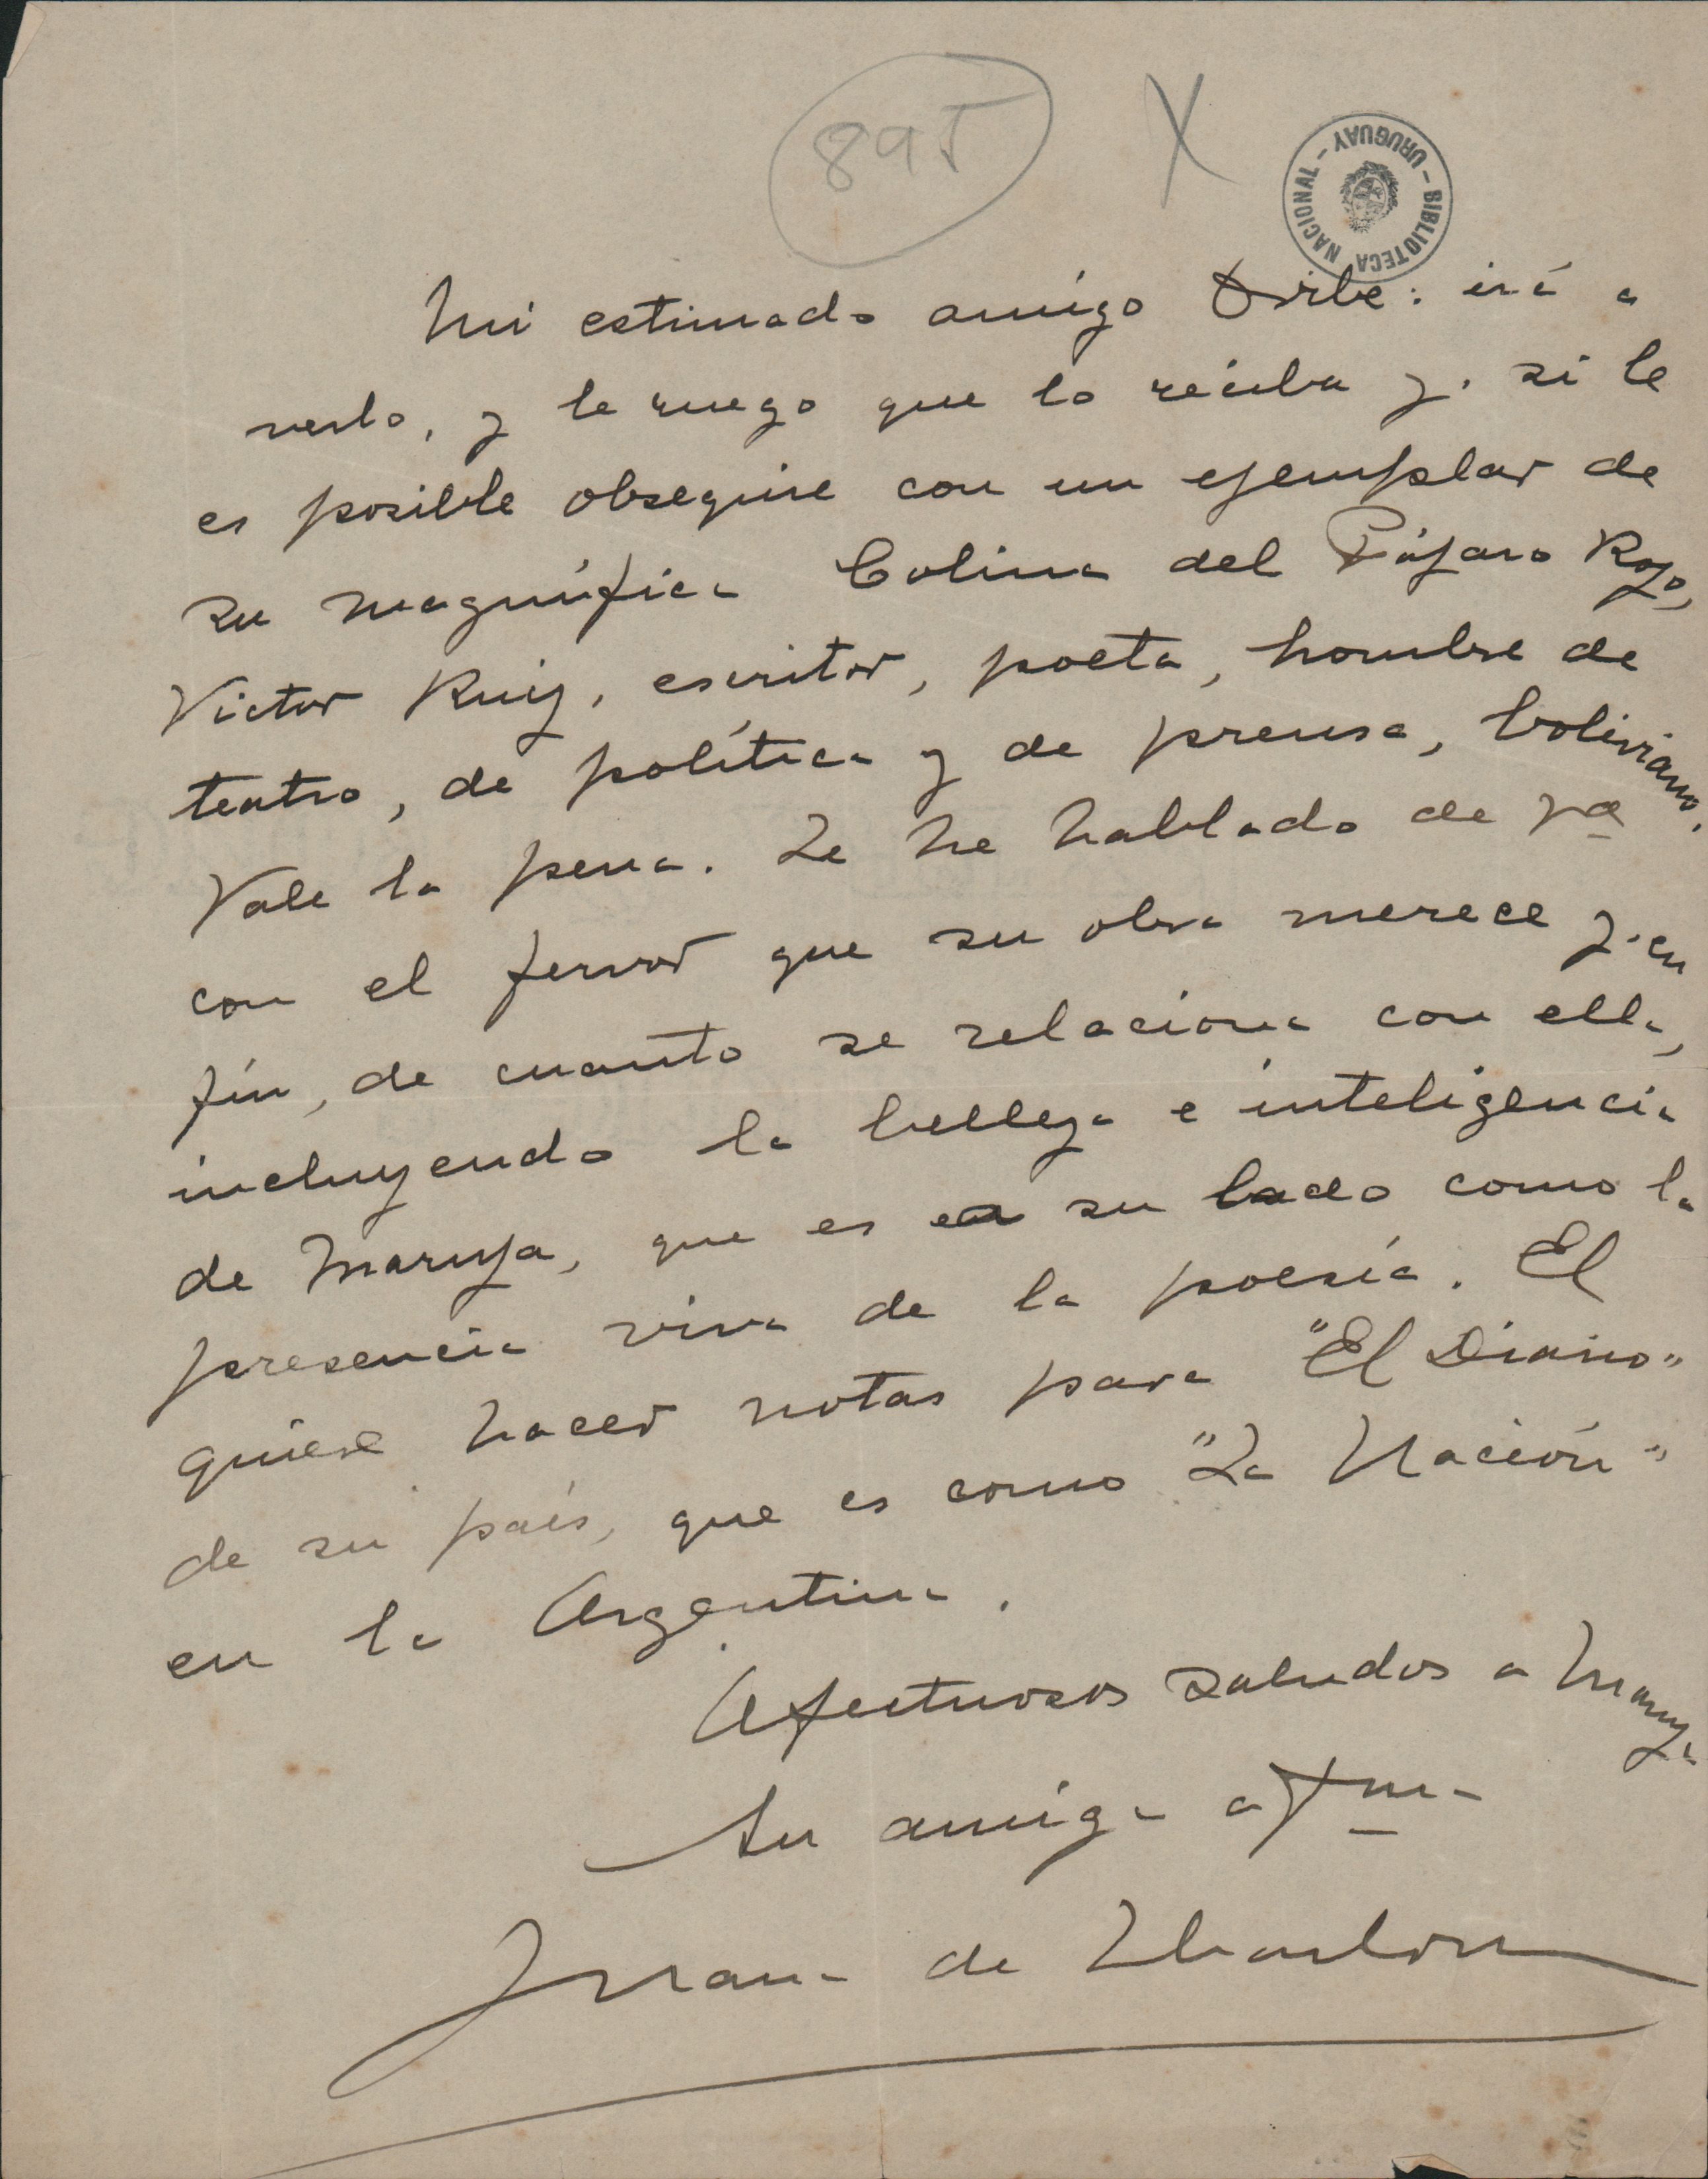 895 X
BIBLIOTECA NACIONAL - URUGUAY -
Mi estimado amigo Oribe: irá a
verlo, y le ruego que lo reciba y. si le
es posible obsequie con un ejemplar de
su magnífica Colina del Pájaro Rojo,
Victor Ruiz, escritor, poeta, hombre de
teatro, de política y de prensa, boliviano.
Vale la pena. Le he hablado de Vd
con el fervor que su obra merece y. en
fin, de cuanto se relaciona con ella,
incluyendo la belleza e inteligencia
de Maruja, que es a su lado como la
presencia viva de la poesía. El
quiere hacer notas para "El Diario"
de su país, que es como "La Nación"
en la Argentina.
Afectuosos saludos a Maruja
Su amiga afma
Juana de Ibarbourou